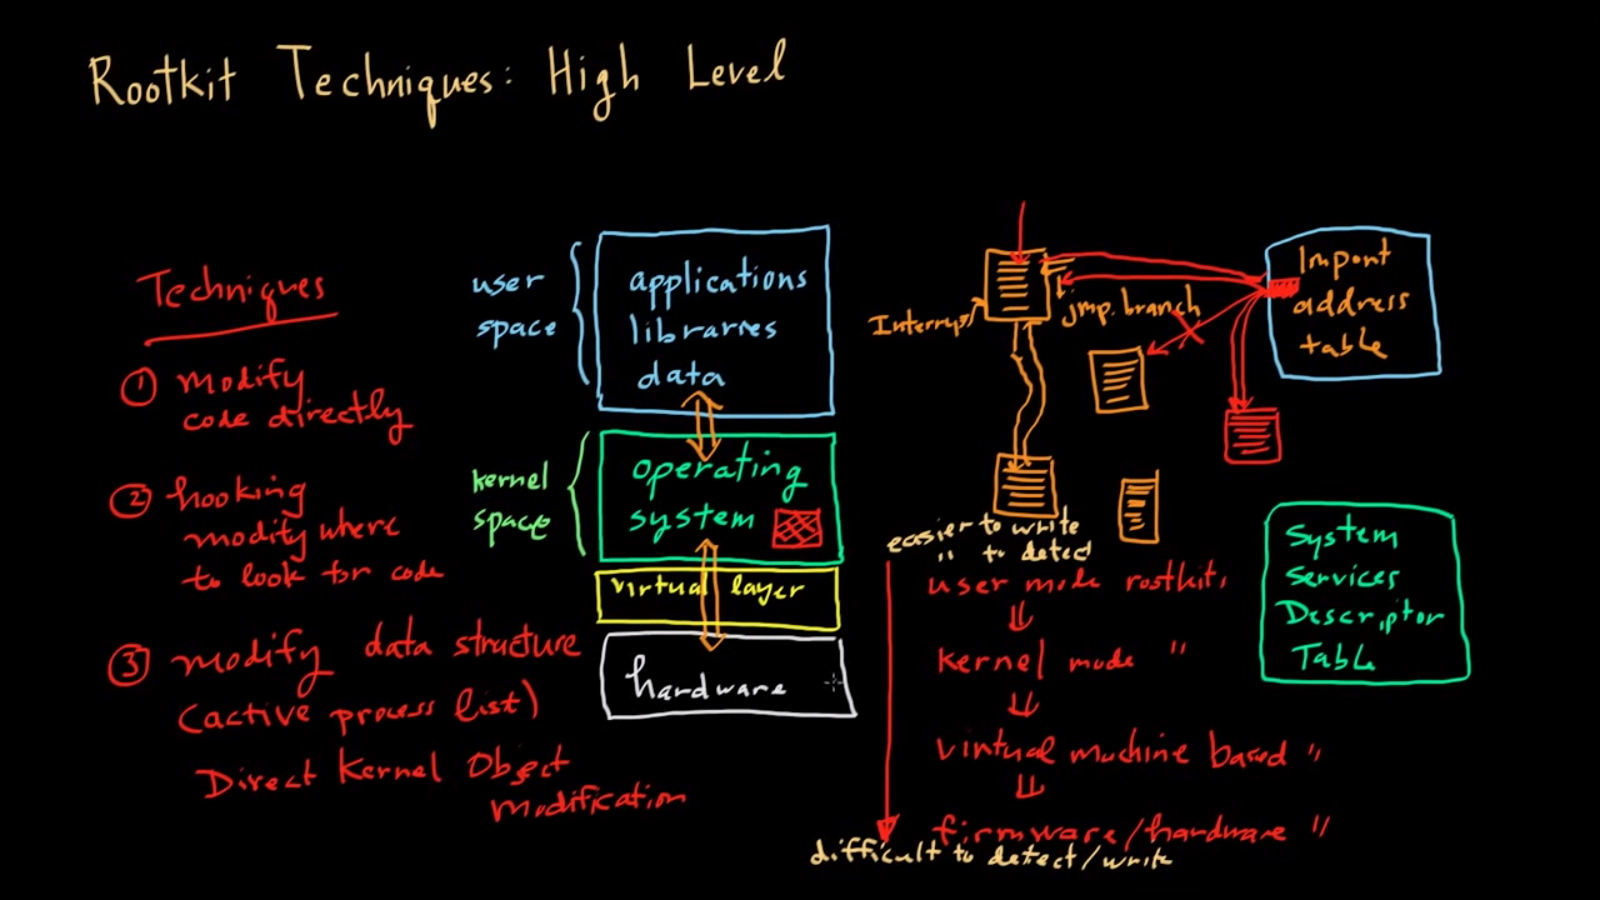 Rootkit Techniques: High Level
Techniques
① modify
code directly
② hooking
modify where
to look for code
③ modify data structure
(active process list)
Direct Kernel Object
modification
user
space
applications
libraries
data
kernel
space
operating
system
virtual layer
hardware
jmp. branch
Import
address
table
easier to write
" to detect
user mode rootkits
kernel mode "
virtual machine based "
firmware/hardware "
difficult to detect/write
System
Services
Descriptor
Table